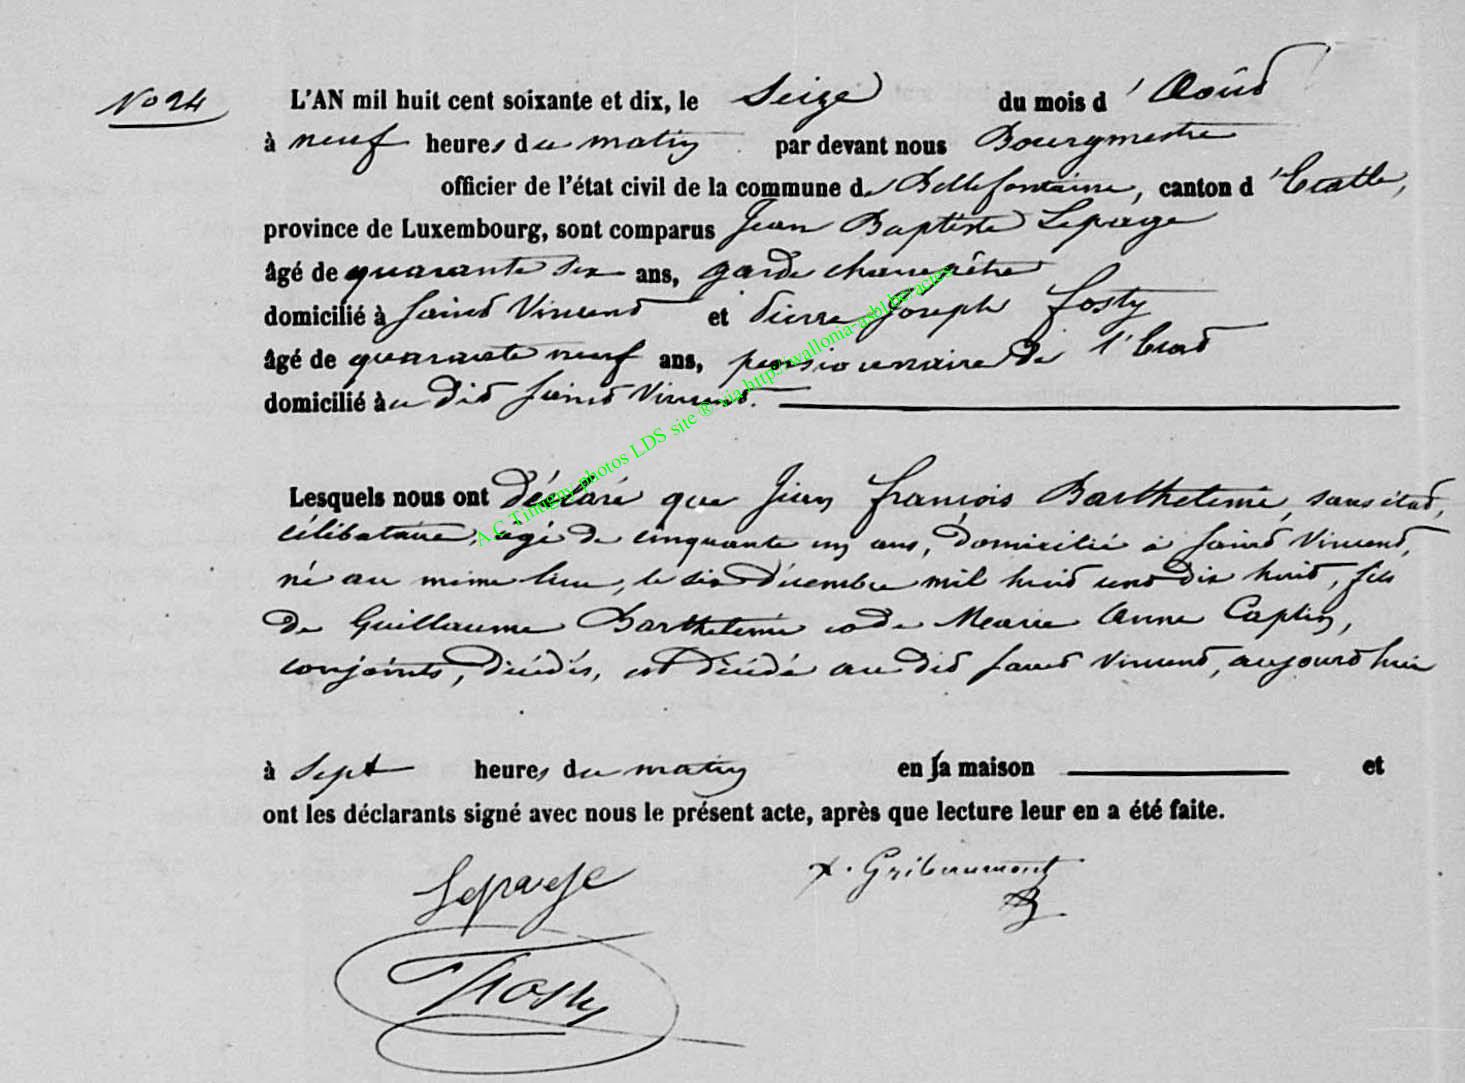 No 24
L'AN mil huit cent soixante et dix, le Seize du mois d'Août
à neuf heures du matin par devant nous Bourgmestre
officier de l'état civil de la commune de Bellefontaine, canton d'Etalle,
province de Luxembourg, sont comparus Jean Baptiste Lepage
âgé de quarante six ans, garde champêtre
domicilié à Saint Vincent et Pierre Joseph Fosty
âgé de quarante neuf ans, pensionnaire de l'Etat
domicilié au dit Saint Vincent.
Lesquels nous ont déclaré que Jean François Barthelemi, sans état,
célibataire, âgé de cinquante un ans, domicilié à Saint Vincent,
né au même lieu, le six décembre mil huit cent dix huit, fils
de Guillaume Barthelemi et de Marie Anne Caplin,
conjoints, décédés, est décédé au dit Saint Vincent, aujourd'hui
à Sept heures du matin en sa maison et
ont les déclarants signé avec nous le présent acte, après que lecture leur en a été faite.
Lepage
Gribaumont
Fosty
A C Tintigny photos LDS site ® via http://wallonia-asbl.be/actes